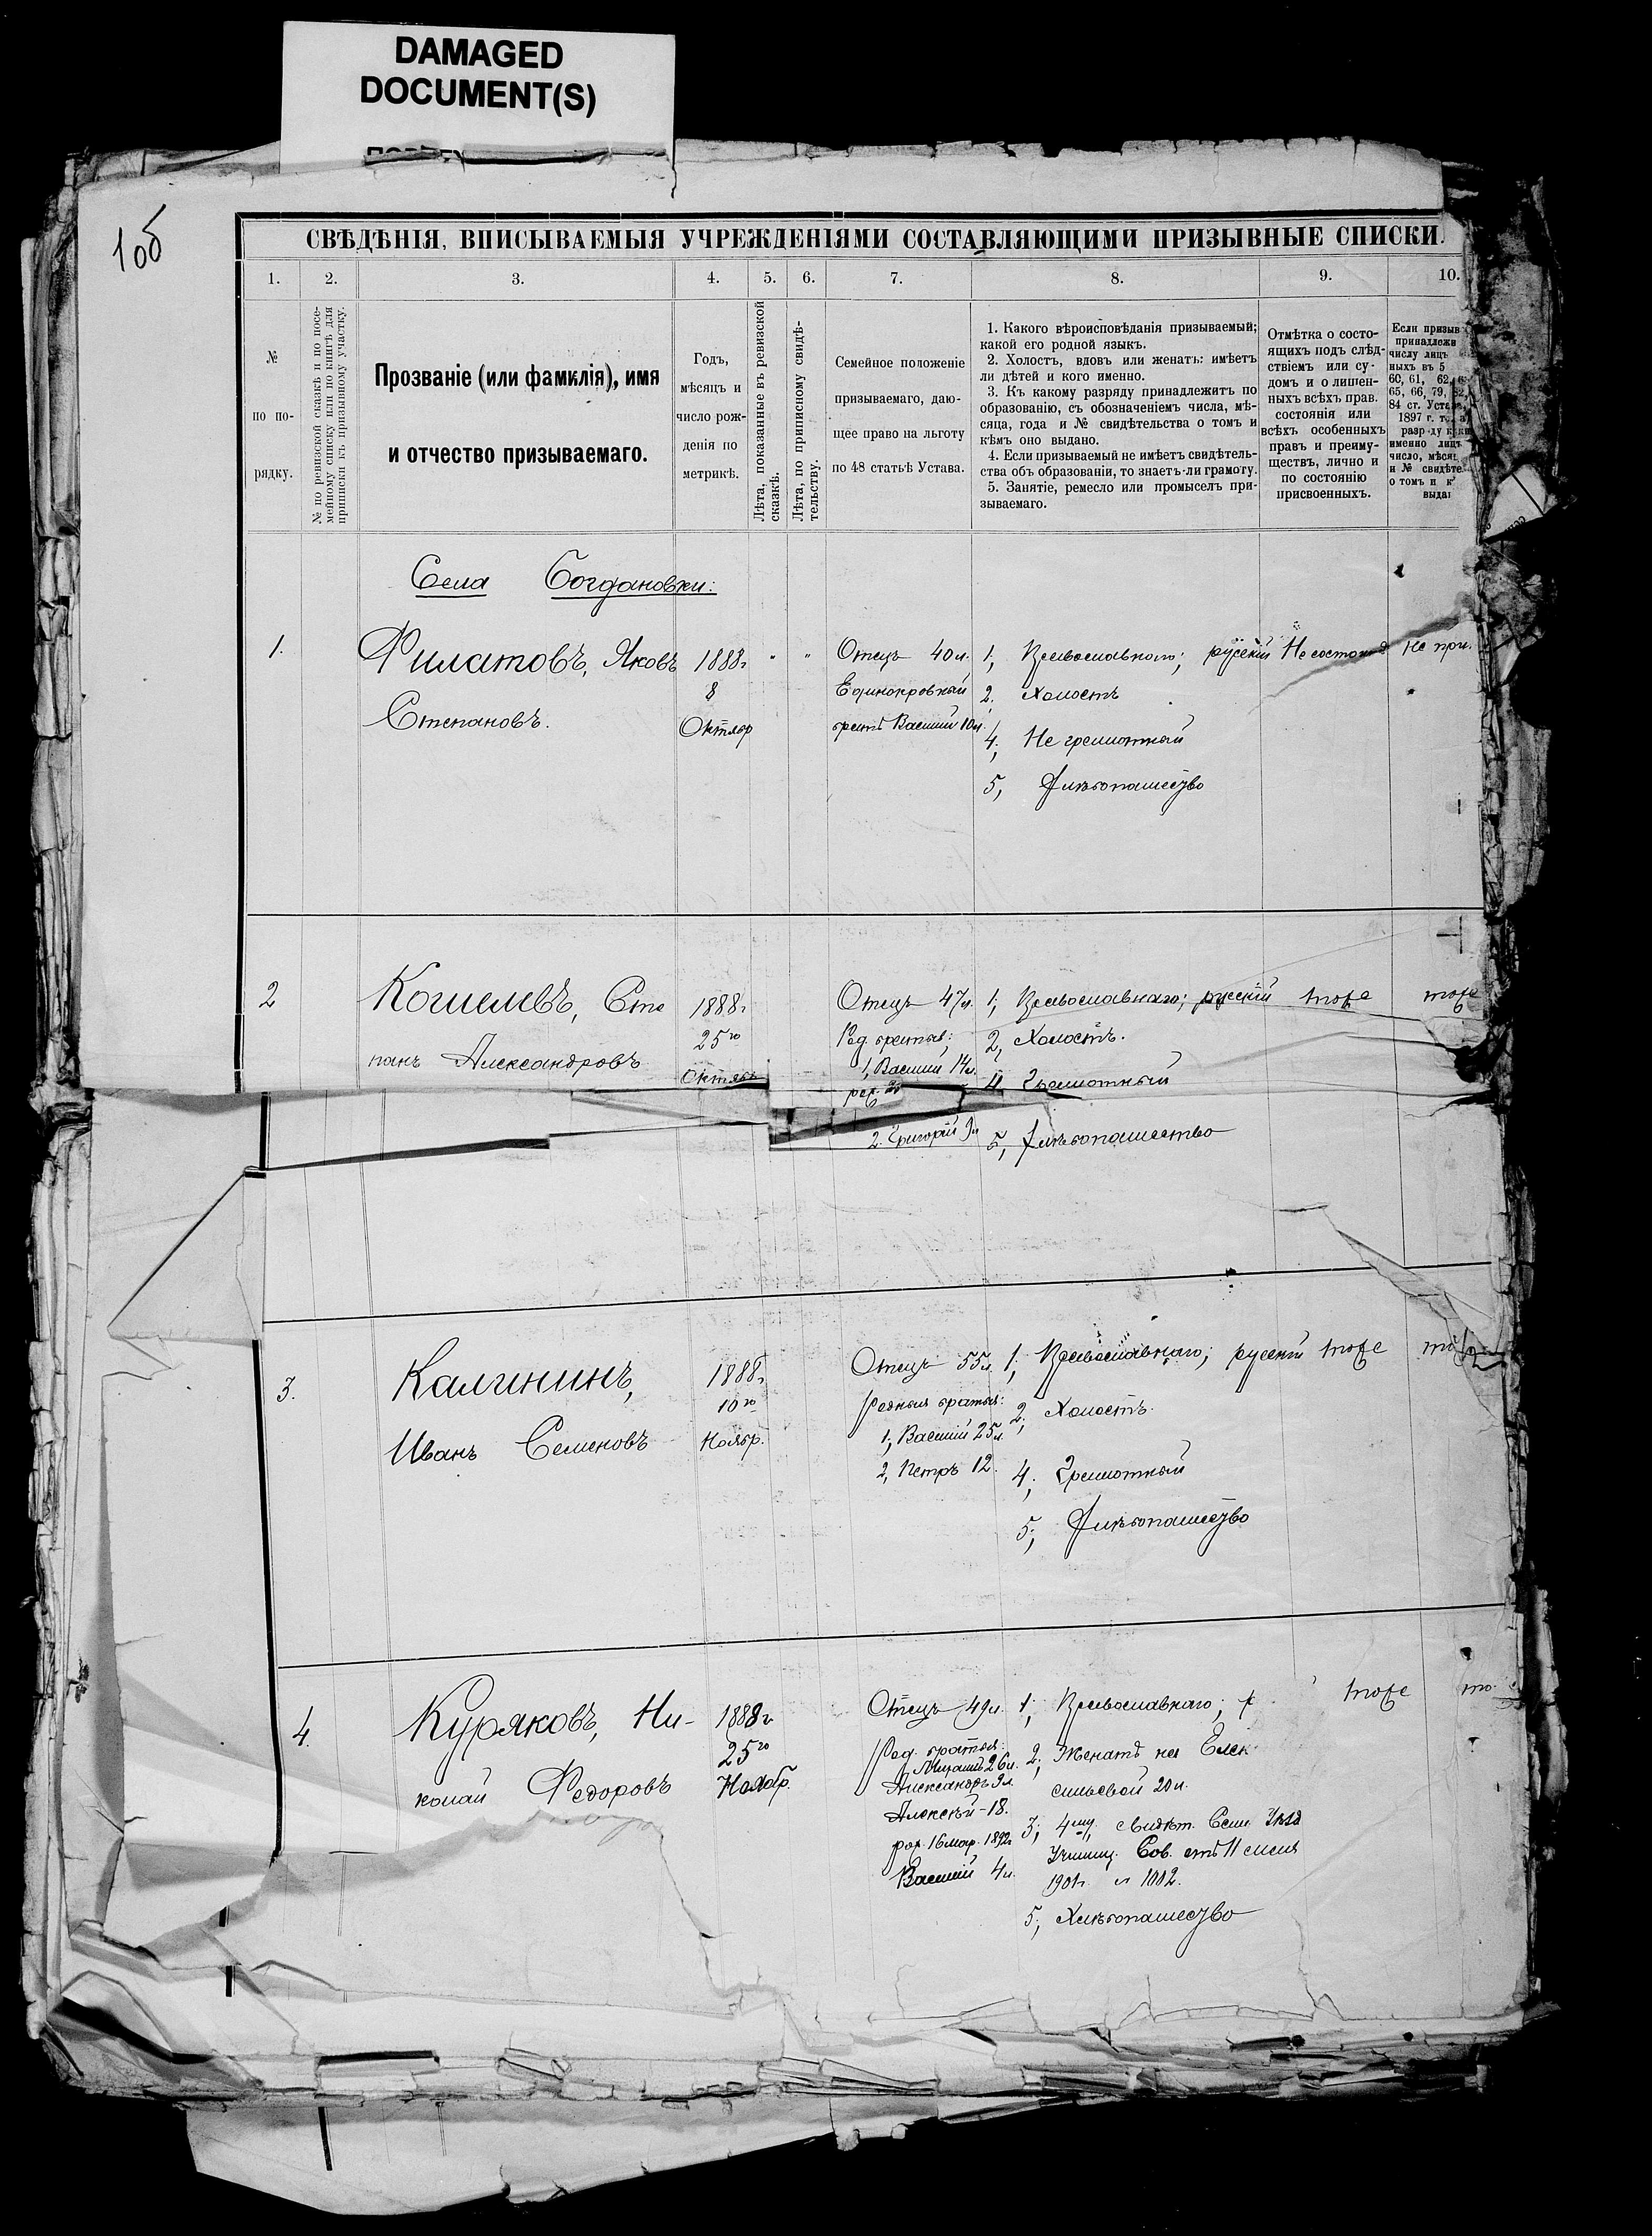 DAMAGED
DOCUMENT(S)
10б
СВѢДѢНІЯ, ВПИСЫВАЕМЫЯ УЧРЕЖДЕНІЯМИ СОСТАВЛЯЮЩИМИ ПРИЗЫВНЫЕ СПИСКИ.
1. 2. 3. 4. 5. 6. 7. 8. 9. 10.
№
по по-
рядку.
№ по ревизской сказкѣ и по посе-
мейному списку или по книгѣ для
приписки къ призывному участку.
Прозваніе (или фамилія), имя
и отчество призываемаго.
Годъ,
мѣсяцъ и
число рож-
денія по
метрикѣ.
Лѣта, показанные въ ревизской
сказкѣ.
Лѣта, по приписному свидѣ-
тельству.
Семейное положеніе
призываемаго, даю-
щее право на льготу
по 48 статьѣ Устава.
1. Какого вѣроисповѣданія призываемый;
какой его родной языкъ.
2. Холостъ, вдовъ или женатъ: имѣетъ
ли дѣтей и кого именно.
3. Къ какому разряду принадлежитъ по
образованію, съ обозначеніемъ числа, мѣ-
сяца, года и № свидѣтельства о томъ и
кѣмъ оно выдано.
4. Если призываемый не имѣетъ свидѣтель-
ства объ образованіи, то знаетъ-ли грамоту.
5. Занятіе, ремесло или промыселъ при-
зываемаго.
Отмѣтка о состо-
ящихъ подъ слѣд-
ствіемъ или су-
домъ и о лишен-
ныхъ всѣхъ прав.
состоянія или
всѣхъ особенныхъ
правъ и преиму-
ществъ, лично и
по состоянію
присвоенныхъ.
Если призыв
принадлежи
числу лицъ
ныхъ въ 5
60, 61, 62,
65, 66, 79, 82,
84 ст. Устава,
1897 г. то
разряду
именно лицъ
число, мѣся
и № свидѣте
о томъ и к
выда
Села Богдановки:
1. Филатовъ, Яковъ
Степановъ.
1888г
8
Октябр
" "
Отецъ 40л.
Единокровный
братъ Василій 10л.
1, Православнаго; русскій
2, Холостъ
4, Не грамотный
5, Хлѣбопашество
Не состоит
Не при.
2 Кошелевъ, Сте
панъ Александровъ
1888г
25го
Октябр
Отецъ 47л.
Род. братья:
1, Василій 14л.
2. Григорій 9л
1, Православнаго; русскій
2, Холостъ.
4 Грамотный
5, Хлѣбопашество
тоже
тоже
3. Калининъ,
Иванъ Семеновъ
1888г
10го
Ноябр.
Отецъ 55л.
Родныя братья:
1, Василій 25л.
2, Петръ 12.
1, Православнаго; русскій
2, Холостъ.
4, Грамотный
5, Хлѣбопашество
тоже
4. Куряковъ, Ни-
колай Федоровъ
1888г
25го
Ноябр.
Отецъ 49л.
Род. братья:
Михаилъ 26л.
Александръ 9л.
Алексѣй - 18.
рож. 16 мар. 1892г
Василій 4л.
1, Православнаго; р
2, Женатъ на Елек
сильевой 20л.
3, 4му свидѣт. Сам Уѣзд
Училищ. Сов. отъ 11
1901г. № 1002.
5, Хлѣбопашество
тоже